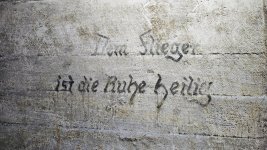 Dem Flieger
ist die Ruhe heilig